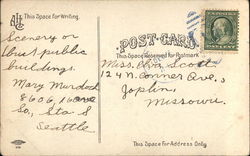 This Space for Writing.
POST-CARD.
This Space Reserved for Postmark
Scenery or
but public
buildings.
Mary Murdock
8606, 16
So., Sta S
Seattle
Miss. Eva Scott
124 N. Conner Ave.,
Joplin,
Missouri.
This Space for Address Only